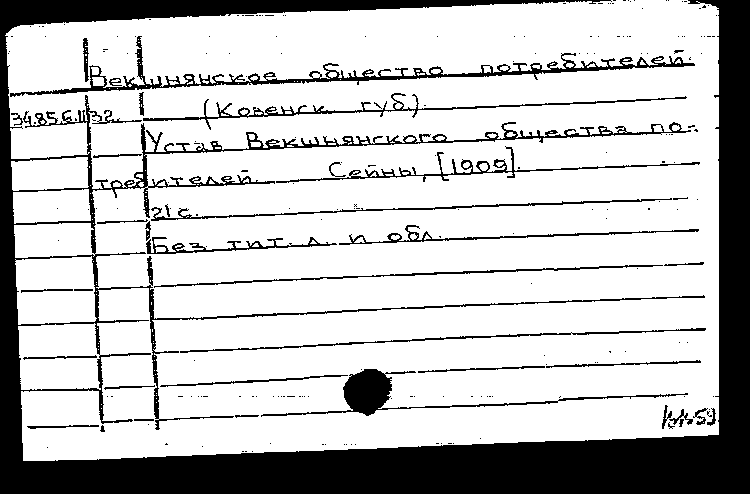 Векшнянское общество потребителей.
34.85.6.1132. (Ковенск. губ.).
Устав Векшнянского общества по-
требителей. Сейны, [1909].
21 с.
Без тит. л. и обл.